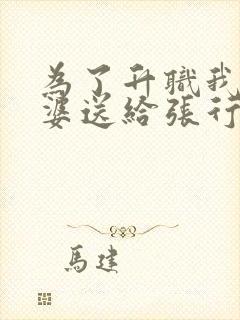 為了升職我
婆送給張行
馬建